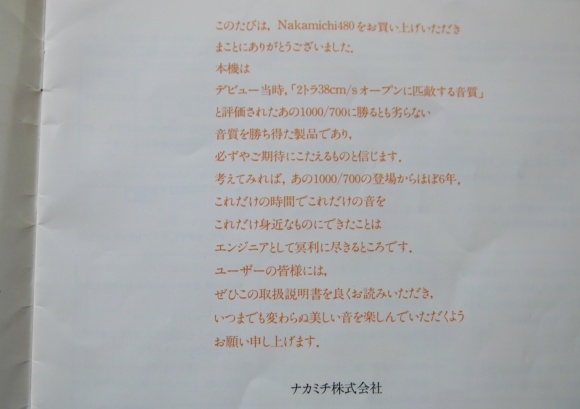 このたびは，Nakamichi480をお買い上げいただき
まことにありがとうございました．
本機は
デビュー当時，「2トラ38cm/sオープンに匹敵する音質」
と評価されたあの1000/700に勝るとも劣らない
音質を勝ち得た製品であり，
必ずやご期待にこたえるものと信じます．
考えてみれば，あの1000/700の登場からほぼ6年．
これだけの時間でこれだけの音を
これだけ身近なものにできたことは
エンジニアとして冥利に尽きるところです．
ユーザーの皆様には，
ぜひこの取扱説明書を良くお読みいただき，
いつまでも変わらぬ美しい音を楽しんでいただくよう
お願い申し上げます．
ナカミチ株式会社